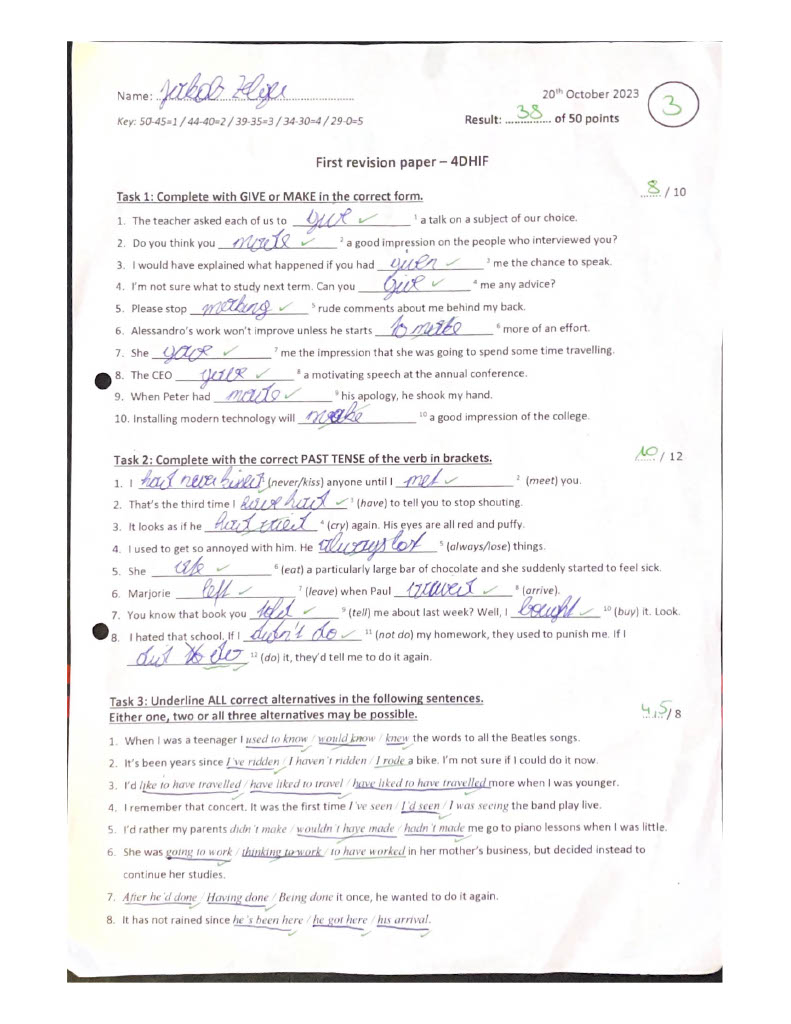 Name: Jakob
20th October 2023
3
Key: 50-45=1 / 44-40=2 / 39-35=3 / 34-30=4 / 29-0=5
Result: 38 of 50 points
First revision paper – 4DHIF
Task 1: Complete with GIVE or MAKE in the correct form.
8 / 10
1. The teacher asked each of us to give ✓ 1 a talk on a subject of our choice.
2. Do you think you made ✓ 2 a good impression on the people who interviewed you?
3. I would have explained what happened if you had given ✓ 3 me the chance to speak.
4. I'm not sure what to study next term. Can you give ✓ 4 me any advice?
5. Please stop making ✓ 5 rude comments about me behind my back.
6. Alessandro's work won't improve unless he starts to make 6 more of an effort.
7. She gave ✓ 7 me the impression that she was going to spend some time travelling.
8. The CEO gave ✓ 8 a motivating speech at the annual conference.
9. When Peter had made ✓ 9 his apology, he shook my hand.
10. Installing modern technology will make 10 a good impression of the college.
Task 2: Complete with the correct PAST TENSE of the verb in brackets.
10 / 12
1. I had never kissed ✓ (never/kiss) anyone until I met ✓ 2 (meet) you.
2. That's the third time I have had ✓ 3 (have) to tell you to stop shouting.
3. It looks as if he had cried 4 (cry) again. His eyes are all red and puffy.
4. I used to get so annoyed with him. He always lost 5 (always/lose) things.
5. She ate ✓ 6 (eat) a particularly large bar of chocolate and she suddenly started to feel sick.
6. Marjorie left ✓ 7 (leave) when Paul arrived ✓ 8 (arrive).
7. You know that book you told ✓ 9 (tell) me about last week? Well, I bought ✓ 10 (buy) it. Look.
8. I hated that school. If I didn't do ✓ 11 (not do) my homework, they used to punish me. If I
did do 12 (do) it, they'd tell me to do it again.
Task 3: Underline ALL correct alternatives in the following sentences.
Either one, two or all three alternatives may be possible.
4,5 / 8
1. When I was a teenager I used to know / would know / knew the words to all the Beatles songs.
2. It's been years since I've ridden / I haven't ridden / I rode a bike. I'm not sure if I could do it now.
3. I'd like to have travelled / have liked to travel / have liked to have travelled more when I was younger.
4. I remember that concert. It was the first time I've seen / I'd seen / I was seeing the band play live.
5. I'd rather my parents didn't make / wouldn't have made / hadn't made me go to piano lessons when I was little.
6. She was going to work / thinking to work / to have worked in her mother's business, but decided instead to
continue her studies.
7. After he'd done / Having done / Being done it once, he wanted to do it again.
8. It has not rained since he's been here / he got here / his arrival.